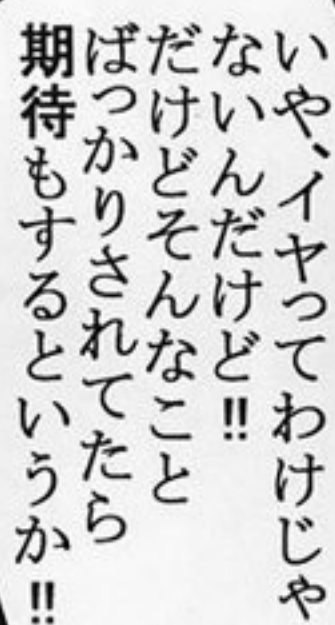 いや、イヤってわけじゃ
ないんだけど!!
だけどそんなこと
ばっかりされてたら
期待もするというか!!